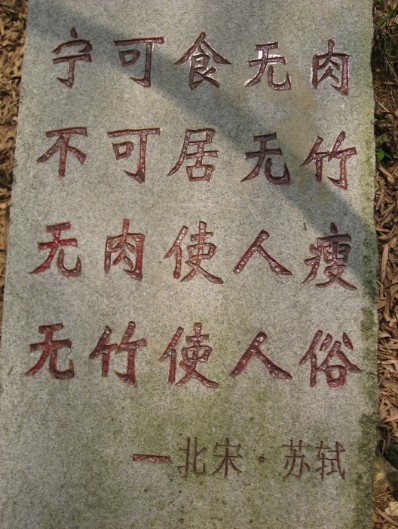 宁可食无肉
不可居无竹
无肉使人瘦
无竹使人俗
—北宋·苏轼